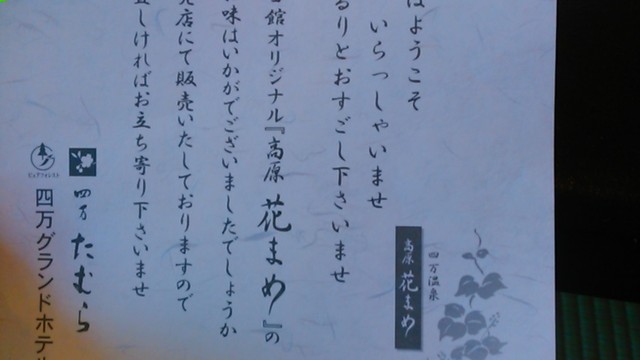 はようこそ
いらっしゃいませ
るりとおすごし下さいませ
館オリジナル『高原花まめ』の
味はいかがでございましたでしょうか
売店にて販売いたしておりますので
宜しければお立ち寄り下さいませ
四万温泉
高原花まめ
四万たむら
四万グランドホテル
ピュアフォレスト